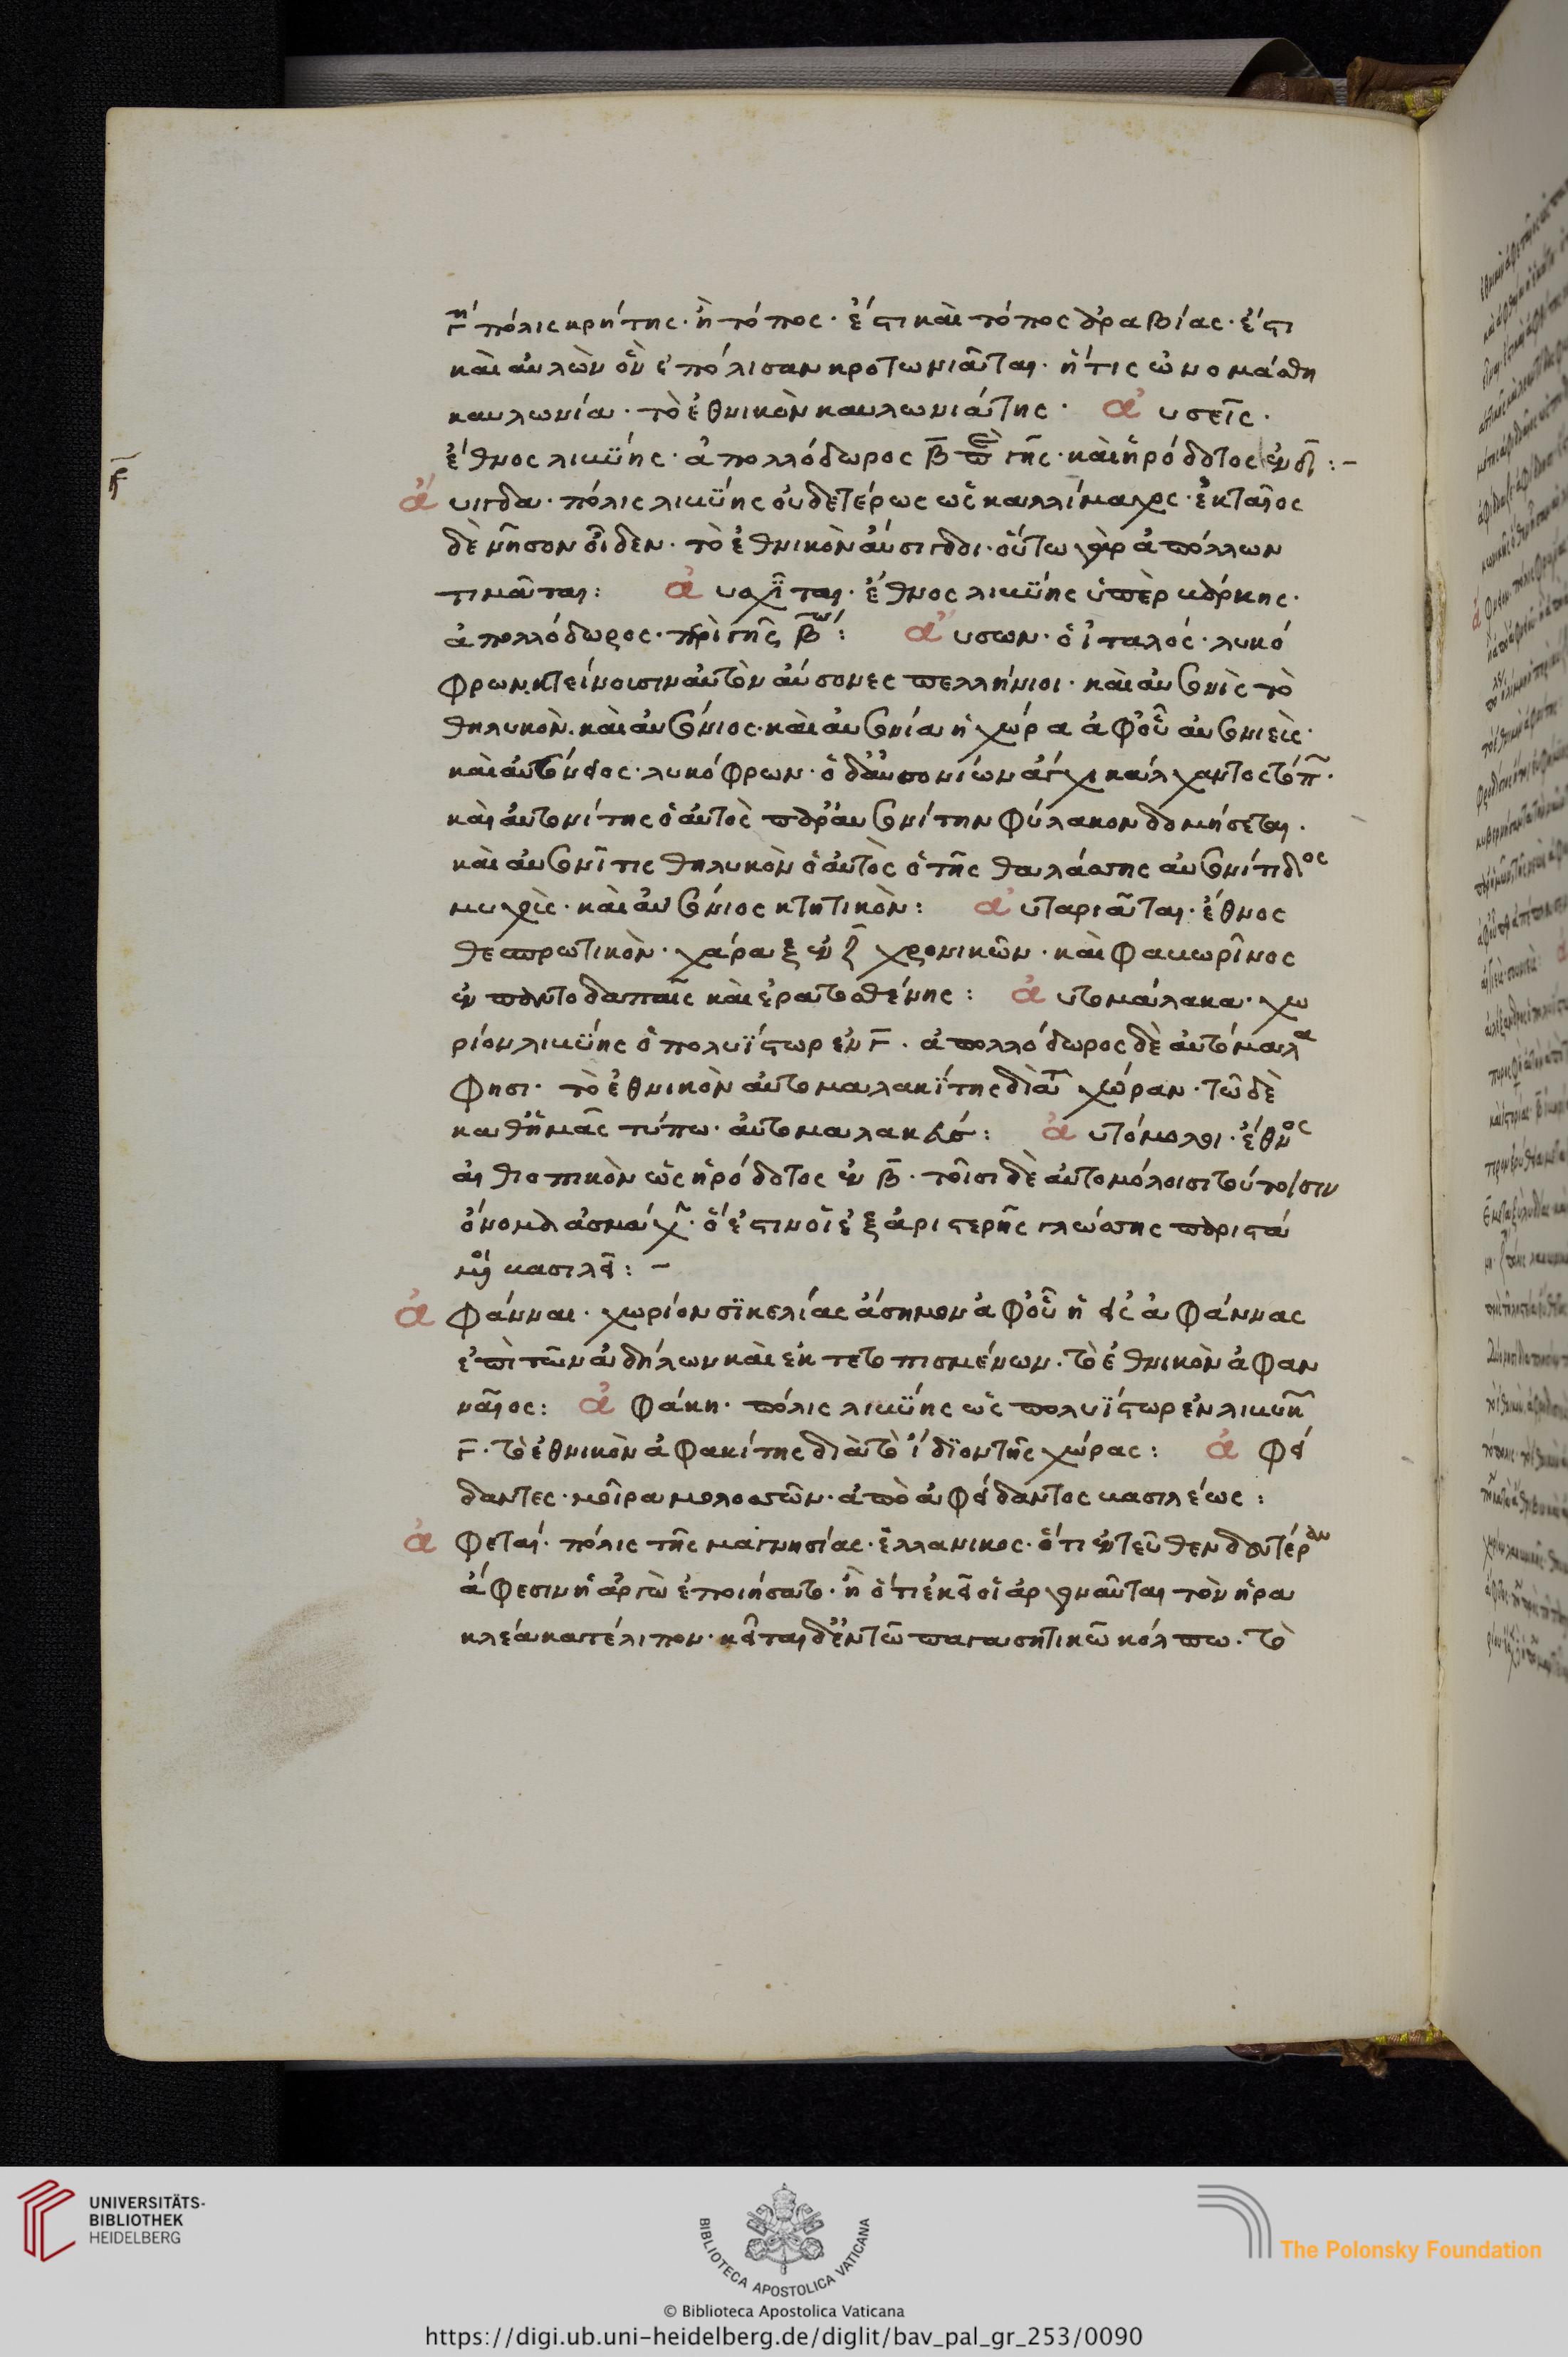 γη΄ πόλις κρήτης· ἢ τόπος· ἔστι καὶ τόπος ἀραβίας· ἔστι
καὶ αὐλὼν ὃν ἐπόλισαν κροτωνιᾶται· ἥτις ὠνομάσθη
καυλωνία· τὸ ἐθνικὸν καυλωνιάτης· ἀ υσεῖς·
ἔθνος λιβύης· ἀπολλόδωρος β̄ περὶ γῆς· καὶ ἡρόδοτος ἐν δ̄ :–
ἄ υιγδα· πόλις λιβύης οὐδετέρως ὡς καλλίμαχος· ἑκταῖος
δὲ νῆσον οἶδεν· τὸ ἐθνικὸν αὐσιγδοι· οὕτω γὰρ ἀπόλλων
τιμᾶται: ἀ υχῖται· ἔθνος λιβύης ὑπὲρ βάρκης·
ἀπολλόδωρος· περὶ γῆς β̄ω΄: ἀ υσων· ὁ ἰταλός· λυκό
φρων. κτείνουσιν αὐτὸν αὔσονες πελλήνιοι· καὶ αὐσονὶς τὸ
θηλυκὸν. καὶ αὐσόνιος· καὶ αὐσονία ἡ χώρα ἀφ' οὗ αὐσονιεὶς·
καὶ αὐσόνειος· λυκόφρων· ὁ δ' αὐσονίων ἄγχι κάλχαντος τόπ̄·
καὶ αὐσονίτης ὁ αὐτὸς παρ' αὐσονίτην φύλακον δομήσεται·
καὶ αὐσονῖτις θηλυκὸν ὁ αὐτὸς ὁ τῆς θαλάσσης αὐσονίτιδος
μυχὶς· καὶ αὐσόνιος κτητικὸν: ἀ υταριᾶται· ἔθνος
θεσπρωτικὸν· χάραξ ἐν ζ̄ χρονικῶν· καὶ φαβωρῖνος
ἐν παντοδαπαῖς καὶ ἐρατοσθένης: ἀ υτομάλακα· χω
ρίον λιβύης ὁ πολυΐστωρ ἐν γ̄· ἀπολλόδωρος δὲ αὐτόμαλα
φησι· τὸ ἐθνικὸν αὐτομαλακΐτης διὰ τ χώραν· τῶ δὲ
καθ' ἡμᾶς τύπω· αὐτομαλακεύς: ἀ υτόμολοι· ἔθνος
αἰθιοπικὸν ὡς ἡρόδοτος ἐν β̄· τοῖσι δὲ αὐτομόλοισι τούτοισιν
ὄνομα ἀσμάχ̄· ὅ ἐστιν οἳ ἐξ ἀριστερῆς γλώσσης παριστά
μενοι βασιλεῖ: –
ἀ φάνναι· χωρίον σϊκελίας ἄσημον ἀφ' οὗ ἡ εἰς ἀφάννας
ἐπὶ τῶν ἀδήλων καὶ ἐκτετοπισμένων. τὸ ἐθνικὸν ἀφαν
ναῖος: ἀ φάκη· πόλις λιβύης ὡς πολυΐστωρ ἐν λιβυκ̄
γ̄· τὸ ἐθνικὸν ἀφακίτης διὰ τὸ ἴδϊον τῆς χώρας: ἀ φεί
δαντες· μοῖρα μολοσσῶν· ἀπὸ ἀφείδαντος βασιλέως:
ἀ φεταί· πόλις τῆς μαγνησίας· ἑλλανικος· ὅτι ἐντεῦθεν δευτέραν
ἄφεσιν ἡ ἀργὼ ἐποιήσατο· ἢ ὅτι ἐκεῖ οἱ ἀργοναῦται τὸν ἡρα
κλέα κατέλιπον· κεῖται δ' ἐν τῶ παγασητικῶ κόλπω· τὸ
UNIVERSITÄTS-
BIBLIOTHEK
HEIDELBERG
BIBLIOTECA APOSTOLICA VATICANA
The Polonsky Foundation
© Biblioteca Apostolica Vaticana
https://digi.ub.uni-heidelberg.de/diglit/bav_pal_gr_253/0090